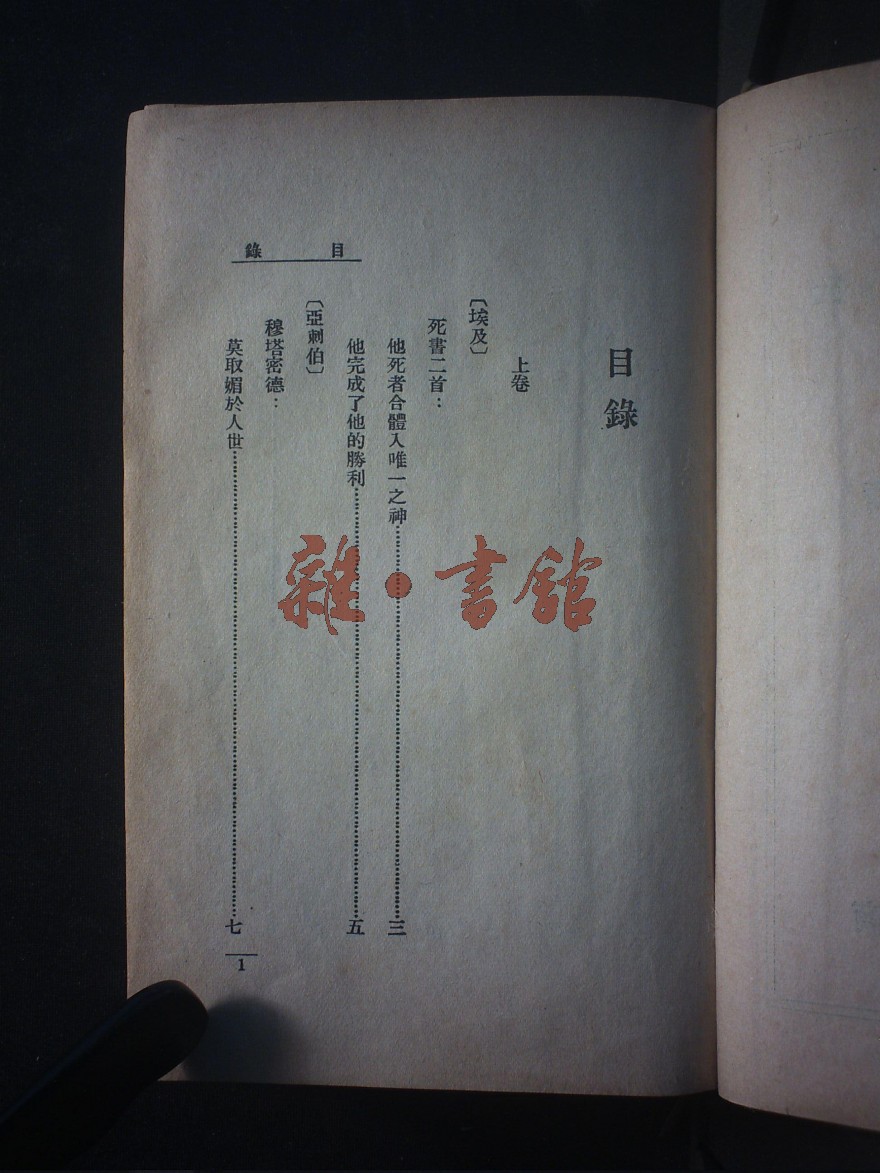 目錄
上卷
〔埃及〕
死書二首：
他死者合體入唯一之神……三
他完成了他的勝利……五
〔亞剌伯〕
穆塔密德：
莫取媚於人世……七
目錄
1
雜·書館